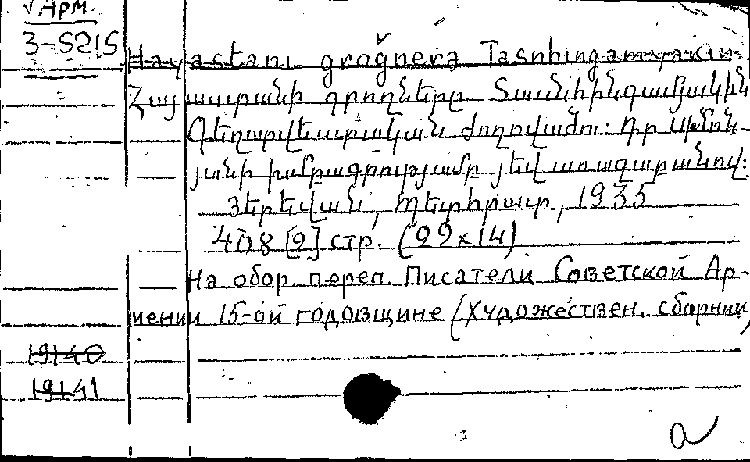 √ Арм.
3-5215
Hayastani groġnerə Tasnhingamyakin
Հայաստանի գրողները Տասնհինգամյակին
Գեղարվեստական ժողովածու: Դր. Սիմոն-
յանի խմբագրությամբ յեվ առաջաբանով:
Յերեվան, Պետհրատ, 1935
408 [2] стр. (22x14)
На обор. перев. Писатели Советской Ар-
мении 15-ой годовщине (Художествен. сборник)
19140
19141